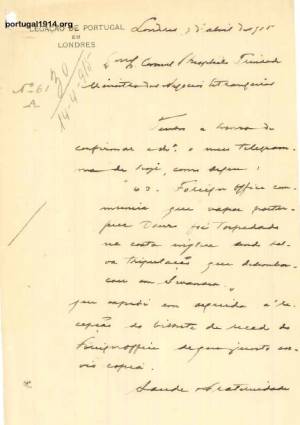 portugal1914.org
LEGAÇÃO DE PORTUGAL
EM
LONDRES
Londres 3 d'abril de 1915
Nº 61
A
30
14-4-915
Ministro dos Negocios Estrangeiros
Tenho a honra de
confirmar a o meu telegram-
ma de hoje, como segue:
Foreign Office
communica que vapor portu-
guez Douro foi torpedeado
na costa ingleza sendo sal-
va tripulação que desembar-
cou em Swansea
que expedi em seguida á re-
cepção do bilhete de
Foreign Office de que junto en-
vio copia.
Saude e Fraternidade